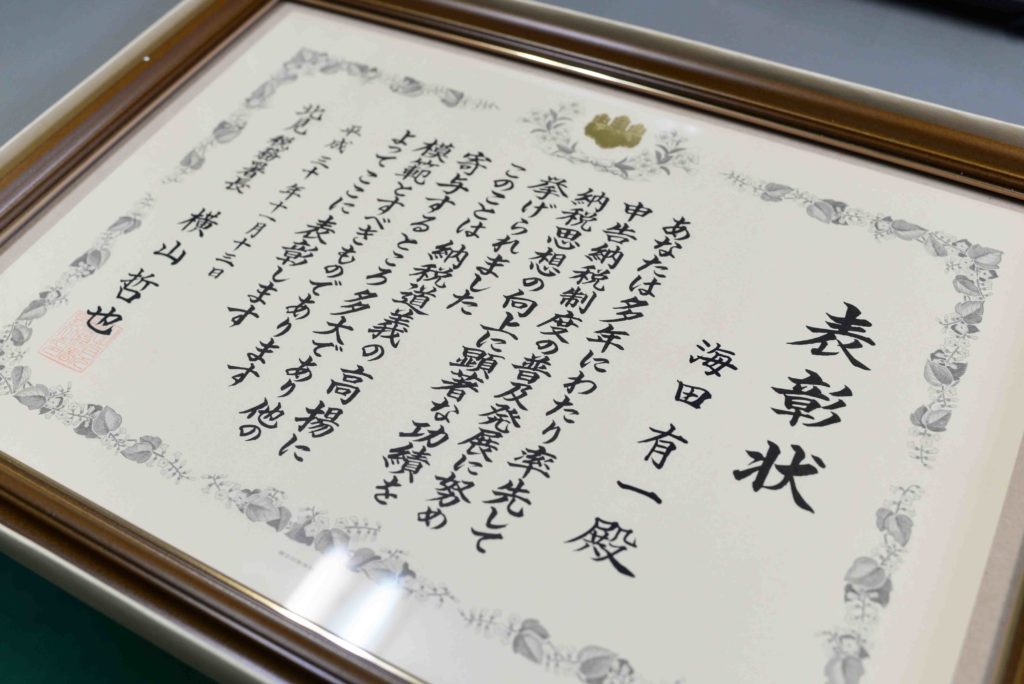 表彰状
海田有一殿
あなたは多年にわたり率先して
申告納税制度の普及発展に努め
納税思想の向上に顕著な功績を
挙げられました
このことは納税道義の高揚に
寄与するところ多大であり他の
模範とすべきものであります
よってここに表彰します
平成三十年十一月十三日
北見税務署長 横山哲也